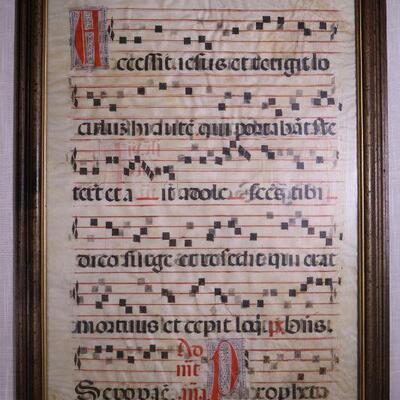 Accessit iesus et tetigit lo
culuz hi autē qui portabāt ste
et a it adole scēs tibi
dico surge et resedit qui erat
mortuus et cepit loq̄
Ad
Propheta